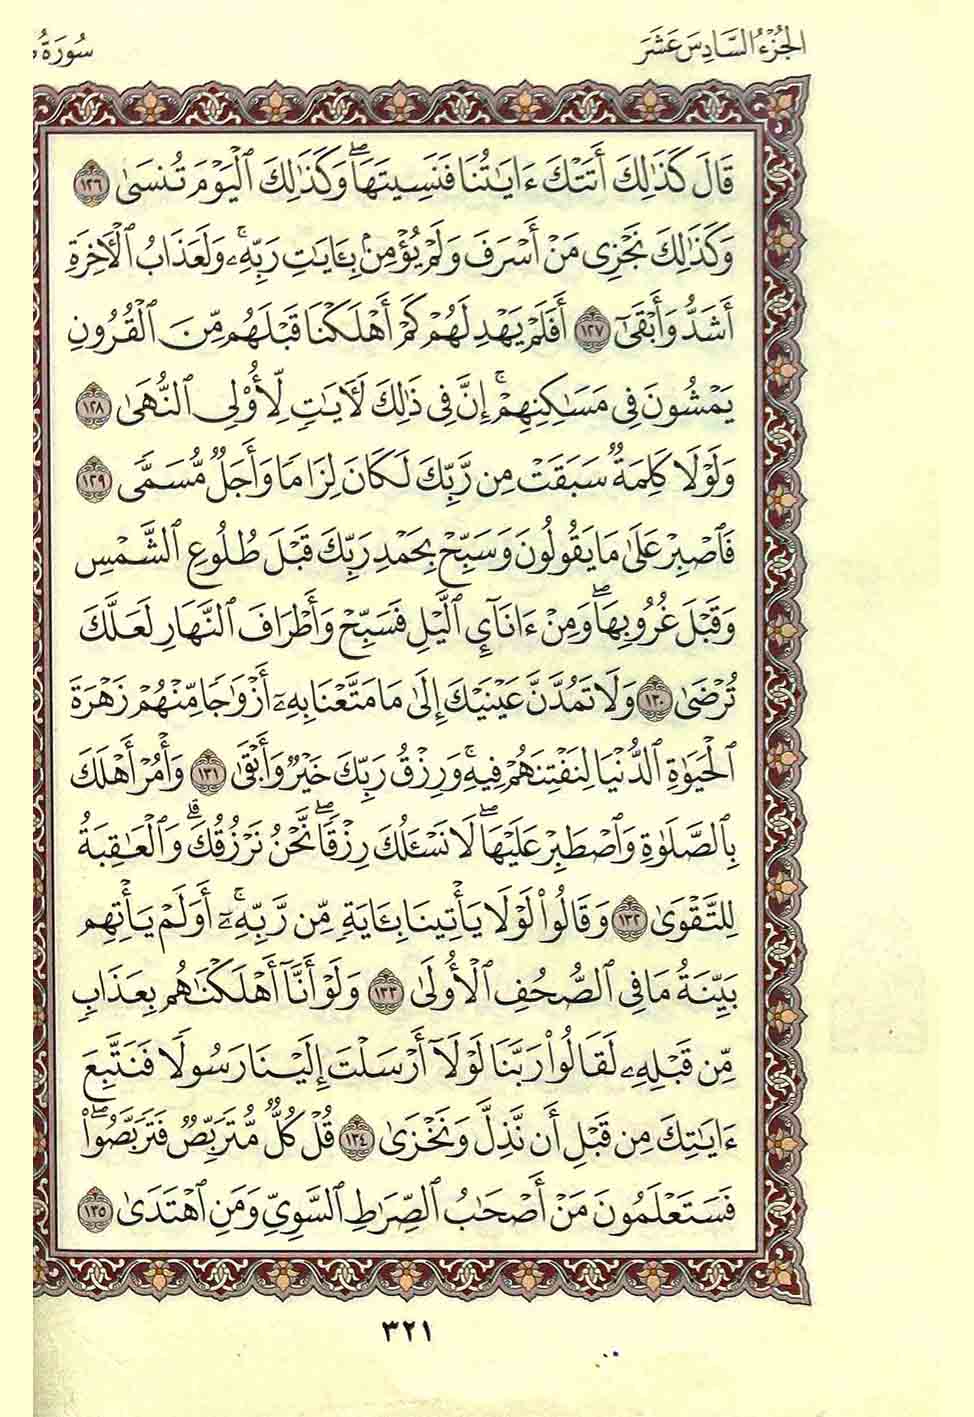 الجزء السادس عشر
سورة
قَالَ كَذَٰلِكَ أَتَتْكَ ءَايَٰتُنَا فَنَسِيتَهَاۖ وَكَذَٰلِكَ ٱلْيَوْمَ تُنسَىٰ ١٢٦
وَكَذَٰلِكَ نَجْزِى مَنْ أَسْرَفَ وَلَمْ يُؤْمِنۢ بِـَٔايَٰتِ رَبِّهِۦۚ وَلَعَذَابُ ٱلْءَاخِرَةِ
أَشَدُّ وَأَبْقَىٰٓ ١٢٧ أَفَلَمْ يَهْدِ لَهُمْ كَمْ أَهْلَكْنَا قَبْلَهُم مِّنَ ٱلْقُرُونِ
يَمْشُونَ فِى مَسَٰكِنِهِمْۚ إِنَّ فِى ذَٰلِكَ لَءَايَٰتٍ لِّأُو۟لِى ٱلنُّهَىٰ ١٢٨
وَلَوْلَا كَلِمَةٌ سَبَقَتْ مِن رَّبِّكَ لَكَانَ لِزَامًا وَأَجَلٌ مُّسَمًّى ١٢٩
فَٱصْبِرْ عَلَىٰ مَا يَقُولُونَ وَسَبِّحْ بِحَمْدِ رَبِّكَ قَبْلَ طُلُوعِ ٱلشَّمْسِ
وَقَبْلَ غُرُوبِهَاۖ وَمِنْ ءَانَآئِ ٱلَّيْلِ فَسَبِّحْ وَأَطْرَافَ ٱلنَّهَارِ لَعَلَّكَ
تَرْضَىٰ ١٣٠ وَلَا تَمُدَّنَّ عَيْنَيْكَ إِلَىٰ مَا مَتَّعْنَا بِهِۦٓ أَزْوَٰجًا مِّنْهُمْ زَهْرَةَ
ٱلْحَيَوٰةِ ٱلدُّنْيَا لِنَفْتِنَهُمْ فِيهِۚ وَرِزْقُ رَبِّكَ خَيْرٌ وَأَبْقَىٰ ١٣١ وَأْمُرْ أَهْلَكَ
بِٱلصَّلَوٰةِ وَٱصْطَبِرْ عَلَيْهَاۖ لَا نَسْـَٔلُكَ رِزْقًاۖ نَّحْنُ نَرْزُقُكَۗ وَٱلْعَٰقِبَةُ
لِلتَّقْوَىٰ ١٣٢ وَقَالُوا۟ لَوْلَا يَأْتِينَا بِـَٔايَةٍ مِّن رَّبِّهِۦٓۚ أَوَلَمْ تَأْتِهِم
بَيِّنَةُ مَا فِى ٱلصُّحُفِ ٱلْأُولَىٰ ١٣٣ وَلَوْ أَنَّآ أَهْلَكْنَٰهُم بِعَذَابٍ
مِّن قَبْلِهِۦ لَقَالُوا۟ رَبَّنَا لَوْلَآ أَرْسَلْتَ إِلَيْنَا رَسُولًا فَنَتَّبِعَ
ءَايَٰتِكَ مِن قَبْلِ أَن نَّذِلَّ وَنَخْزَىٰ ١٣٤ قُلْ كُلٌّ مُّتَرَبِّصٌ فَتَرَبَّصُوا۟ۖ
فَسَتَعْلَمُونَ مَنْ أَصْحَٰبُ ٱلصِّرَٰطِ ٱلسَّوِىِّ وَمَنِ ٱهْتَدَىٰ ١٣٥
٣٢١